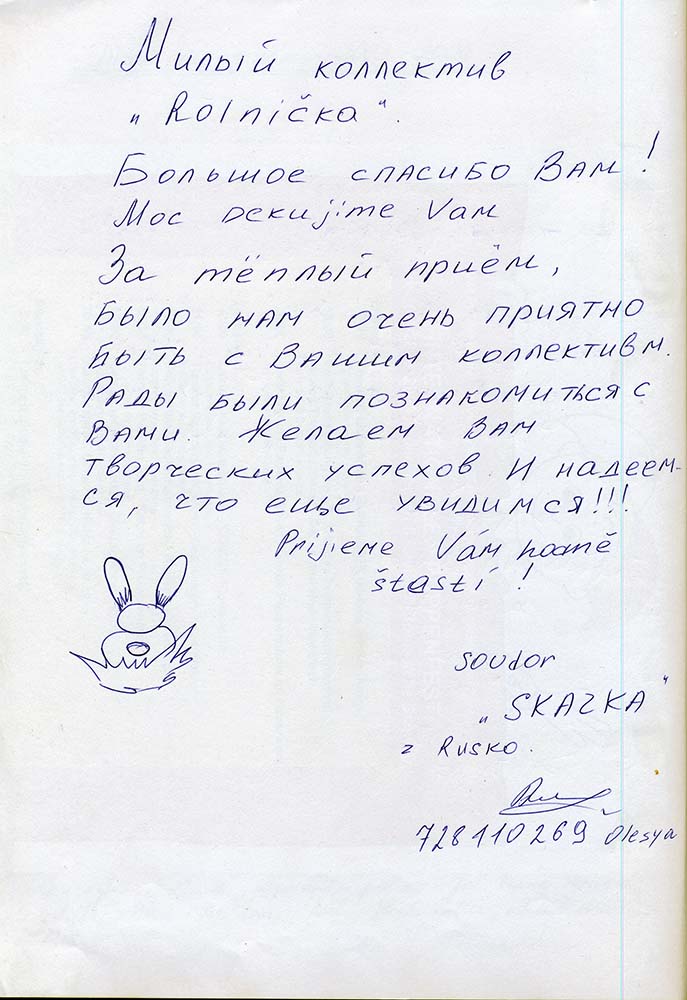 Милый коллектив
„Rolnička".
Большое спасибо Вам!
Moc Dekujime Vam
За тёплый приём,
Было нам очень приятно
Быть с Вашим коллективм.
Рады были познакомиться с
Вами. Желаем Вам
творческих успехов. И надеем-
ся, что еще увидимся!!!
Prijieme Vám
štastí!
soudor
„SKAZKA"
z Rusko.
728110269 Olesya